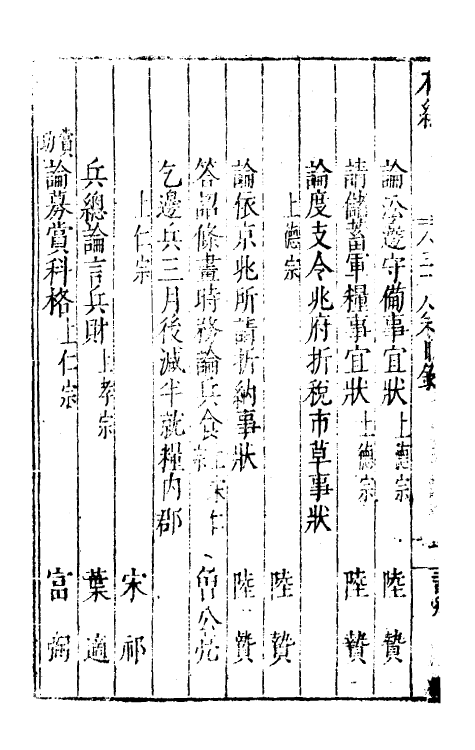 論沿邊守備事宜狀 上德宗 陸贄
請儲蓄軍糧事宜狀 上德宗 陸贄
論度支令兆府折稅市草事狀
上德宗 陸贄
論依京兆所請折納事狀 陸贄
答詔條畫時務論兵食 曾公亮
乞邊兵三月後減半就糧內郡
上仁宗 宋祁
兵總論言兵財 上孝宗 葉適
賞功 論募賞科格 上仁宗 富弼